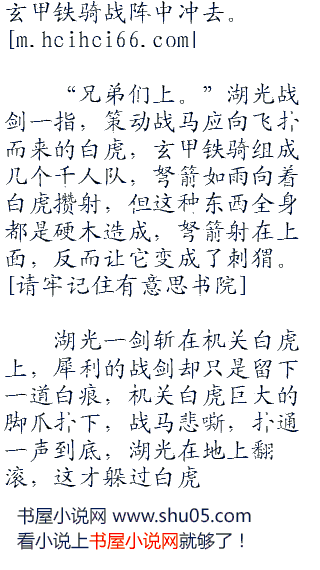 玄甲铁骑战阵中冲去。
[m.hcihci66.com|
“兄弟们上。”湖光战
剑一指，策动战马应向飞扑
而来的白虎，玄甲铁骑组成
几个千人队，弩箭如雨向着
白虎攒射，但这种东西全身
都是硬木造成，弩箭射在上
面，反而让它变成了刺猬。
[请牢记住有意思书院]
湖光一剑斩在机关白虎
上，犀利的战剑却只是留下
一道白痕，机关白虎巨大的
脚爪扑下，战马悲嘶，扑通
一声到底，湖光在地上翻
滚，这才躲过白虎
书屋小说网 www.shu05.com
看小说上书屋小说网就够了！